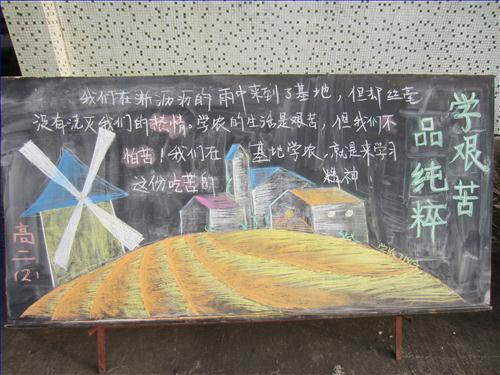 我们在淅沥沥的雨中来到了基地，但却丝毫
没有浇灭我们的热情。学农的生活是艰苦，但我们不
怕苦！我们在基地学农，就是来学习
这份吃苦的精神
学艰苦
品纯粹
高二
（2）